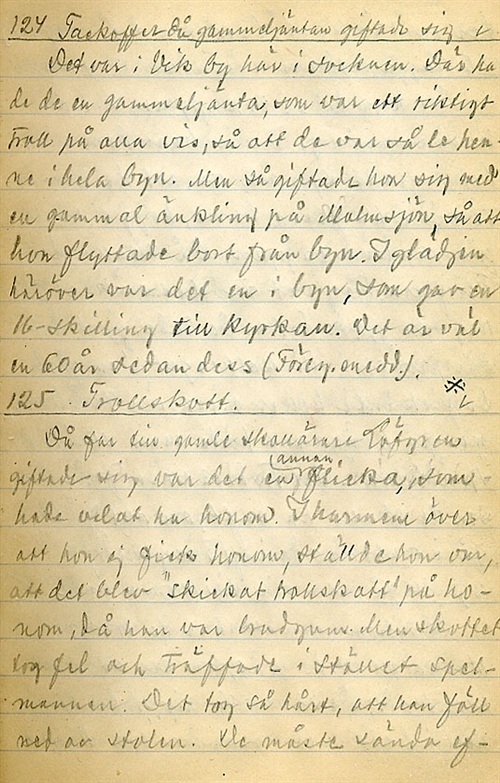 124 Tackoffer då gammeljäntan giftade sig i
Det var i Vik by här i socknen. Där ha-
de de en gammeljänta, som var ett riktigt
troll på alla vis, så att de var så le hen-
ne i hela byn. Men så giftade hon sig med
en gammal änkling på Malmsjön, så att
hon flyttade bort från byn. I glädjen
häröver var det en i byn, som gav en
16-skilling till kyrkan. Det är väl
en 60 år sedan dess (Föreg. medd.).
125. Trollskott. i
Då far till gamle skollärare Löfgren
giftade sig var det en (annan) flicka, som
hade velat ha honom. I harmen över
att hon ej fick honom, ställde hon om,
att det blev "skickat trollskott" på ho-
nom, då han var brudgum. Men skottet
tog fel och träffade i stället spel-
mannen. Det tog så hårt, att han föll
ned av stolen. De måste sända ef-